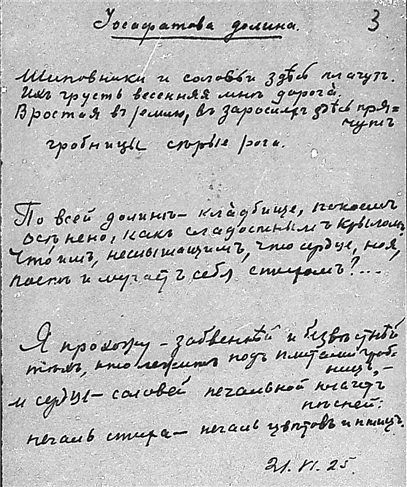 Іосафатова долина.
3
Шиповники и соловьи здѣсь плачутъ.
Ихъ грусть весенняя мнѣ дорога.
Вростая въ землю, въ заросляхъ здѣсь пря=
чутъ
гробницы сѣрые рога.
По всей долинѣ – кладбище, покоемъ
осѣнено, какъ сладостнымъ крыломъ.
Что имъ, неслышащимъ, что сердце, ноя,
поетъ и мучаетъ себя стихомъ?...
Я прохожу – забвеннѣй и безвѣстнѣй
тѣхъ, кто лежитъ подъ плитами гроб-
ницъ, –
и сердце – соловей печальной плачетъ
пѣсней:
печаль стиха – печаль цвѣтовъ и птицъ.
21. VI. 25.